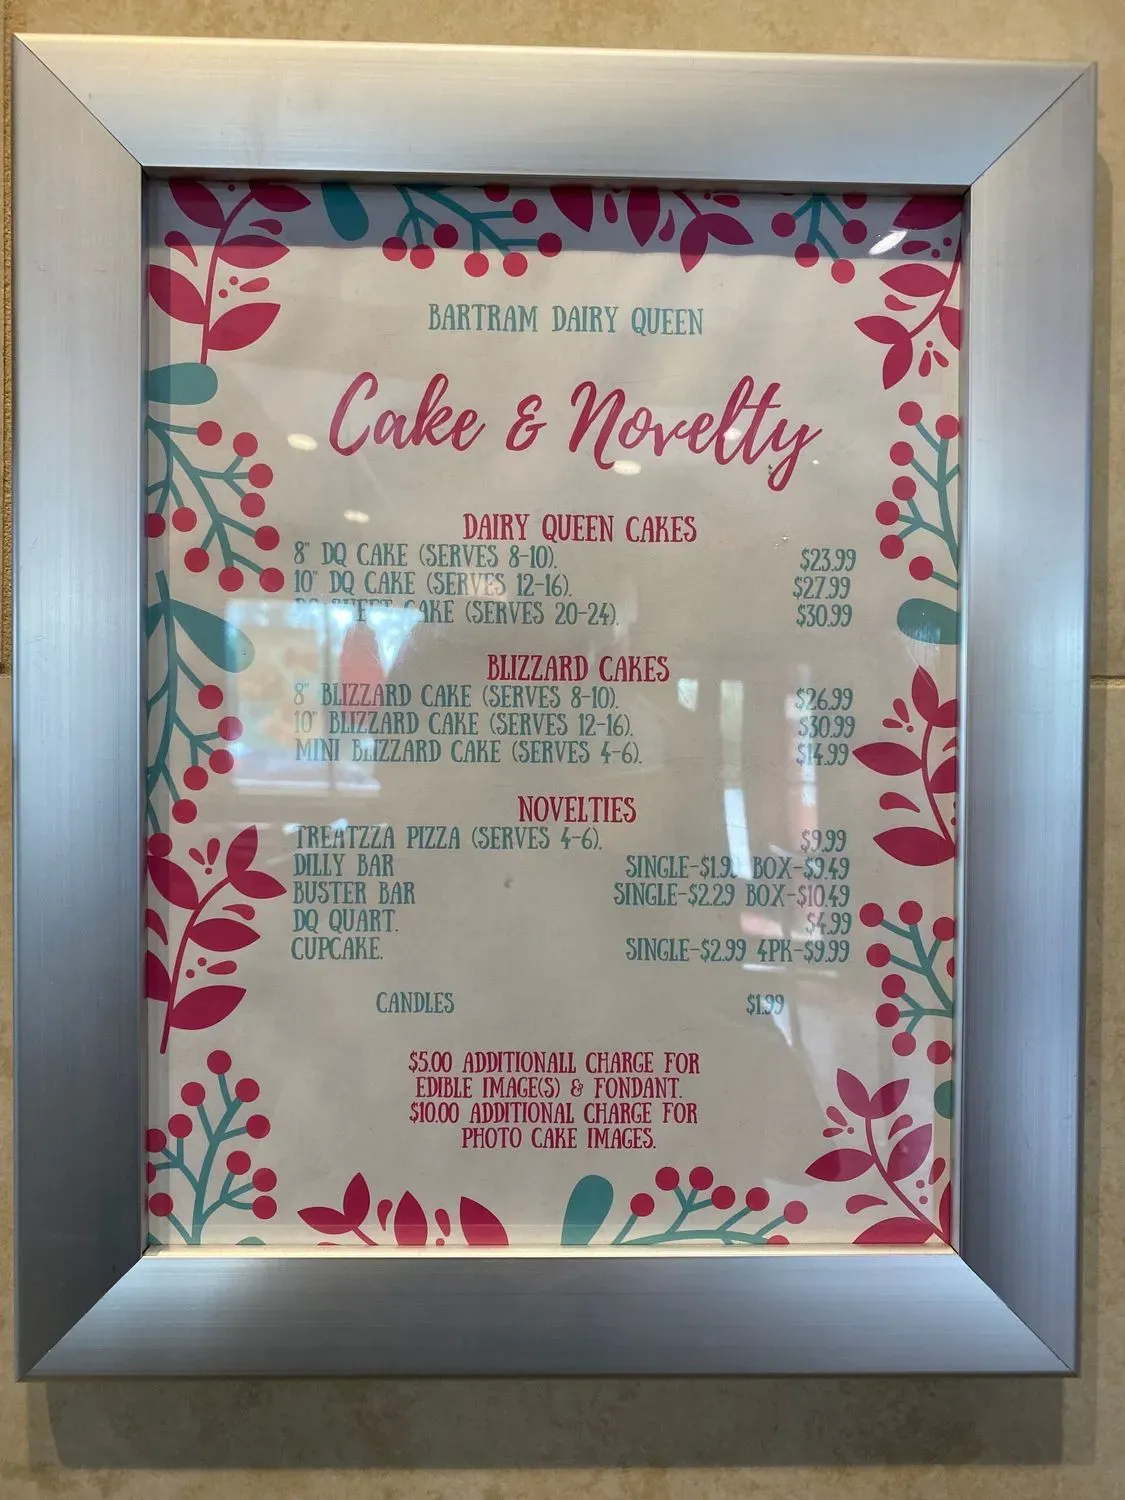 BARTRAM DAIRY QUEEN
Cake & Novelty
DAIRY QUEEN CAKES
8" DQ CAKE (SERVES 8-10). $23.99
10" DQ CAKE (SERVES 12-16). $27.99
DQ SHEET CAKE (SERVES 20-24). $30.99
BLIZZARD CAKES
8" BLIZZARD CAKE (SERVES 8-10). $26.99
10" BLIZZARD CAKE (SERVES 12-16). $30.99
MINI BLIZZARD CAKE (SERVES 4-6). $14.99
NOVELTIES
TREATZZA PIZZA (SERVES 4-6). $9.99
DILLY BAR SINGLE-$1.99 BOX-$9.49
BUSTER BAR SINGLE-$2.29 BOX-$10.49
DQ QUART. $4.99
CUPCAKE. SINGLE-$2.99 4PK-$9.99
CANDLES $1.99
$5.00 ADDITIONALL CHARGE FOR
EDIBLE IMAGE(S) & FONDANT.
$10.00 ADDITIONAL CHARGE FOR
PHOTO CAKE IMAGES.